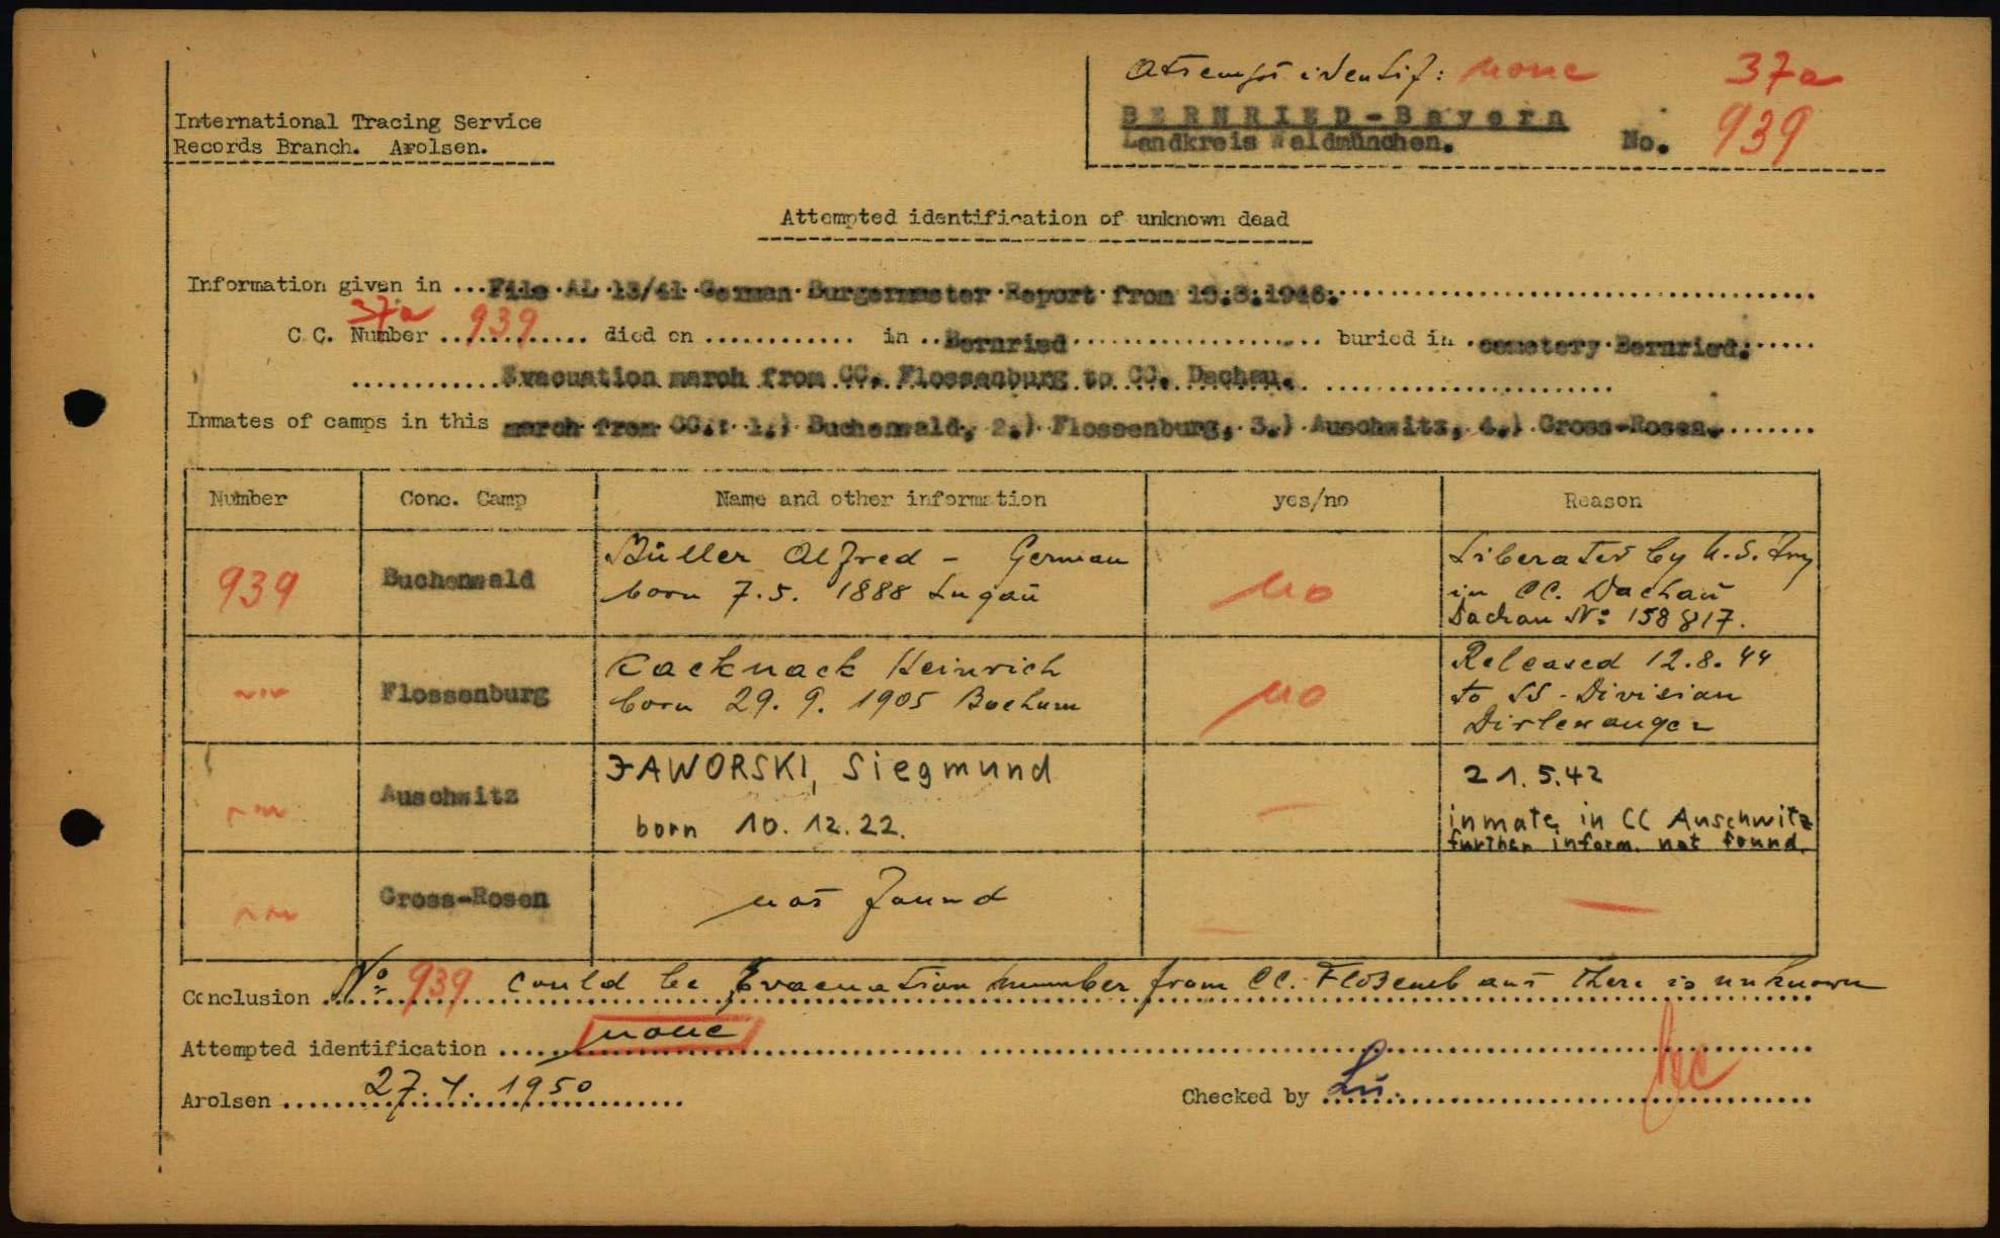 Attempt identif: none 37a
International Tracing Service
Records Branch. Arolsen.
BERNRIED-Bayern
Landkreis Waldmünchen. No. 939
Attempted identification of unknown dead
Information given in ... File AL 13/41 German Burgermester Report from 1946.
37a
C.C. Number 939 died on ............ in .. Bernried ............ buried in . cemetery Bernried.
Evacuation march from CC. Flossenburg to CC. Dachau.
Inmates of camps in this march from CC.: 1.) Buchenwald, 2.) Flossenburg, 3.) Auschwitz, 4.) Gross-Rosen.
Number Conc. Camp Name and other information yes/no Reason
939 Buchenwald Alfred - German no Liberated by U.S. Army
born 7.5. 1888 Lugau in CC. Dachau
Dachau No: 158817.
-"- Flossenburg Heinrich no Released 12.8.44
born 29. 9. 1905 Bochum to SS-Division
Dirlewanger
-"- Auschwitz JAWORSKI, Siegmund — 21.5.42
born 10.12.22. inmate in CC Auschwitz
further inform. not found.
-"- Gross-Rosen not found — —
Conclusion No: 939 could be Evacuation number from CC. Flossenb and there is unknown
Attempted identification none
Arolsen 27. 1950 Checked by Lü.